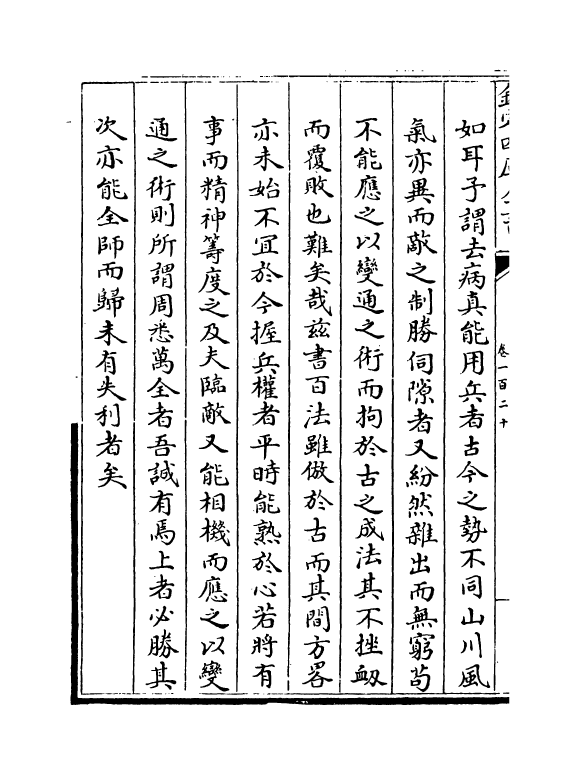 欽定四庫全書
卷一百二十
如耳予謂去病真能用兵者古今之勢不同山川風
氣亦異而敵之制勝伺隙者又紛然雜出而無窮茍
不能應之以變通之術而拘於古之成法其不挫衂
而覆敗也難矣哉兹書百法雖倣於古而其間方畧
亦未始不宜於今握兵權者平時能熟於心若將有
事而精神籌度之及夫臨敵又能相機而應之以變
通之術則所謂周悉萬全者吾誠有焉上者必勝其
次亦能全師而歸未有失利者矣